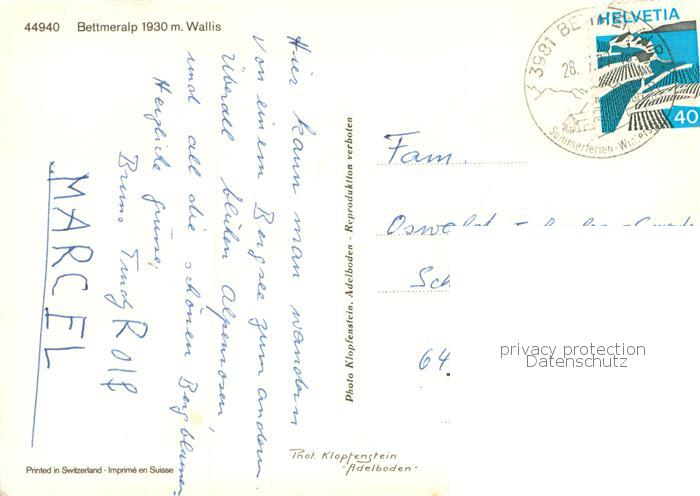 44940 Bettmeralp 1930 m. Wallis
Hier kann man wandern
von einem Bergsee zum andern.
Überall blühen Alpenrosen!
und all die schönen Bergblumen
Herzliche Grüsse;
Bruno Trudy Rolf
MARCEL
Printed in Switzerland - Imprimé en Suisse
Photo Klopfenstein, Adelboden - Reproduktion verboten
Phot. Klopfenstein
- Adelboden -
HELVETIA
40
3981
28.
Sommerferien
Fam.
Oswald
Sch
64
privacy protection
Datenschutz